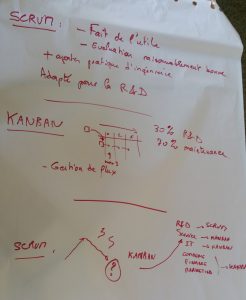 SCRUM :
- Fait de l'utile
- Evaluation raisonnablement bonne
+ pratique d'ingénierie
Adapté pour la R&D
KANBAN
30% R&D
70% maintenance
- Gestion de flux
SCRUM
?
KANBAN
R&D → SCRUM
Service → KANBAN
IT → KANBAN
COMMERCE
FINANCE
MARKETING
KANBAN